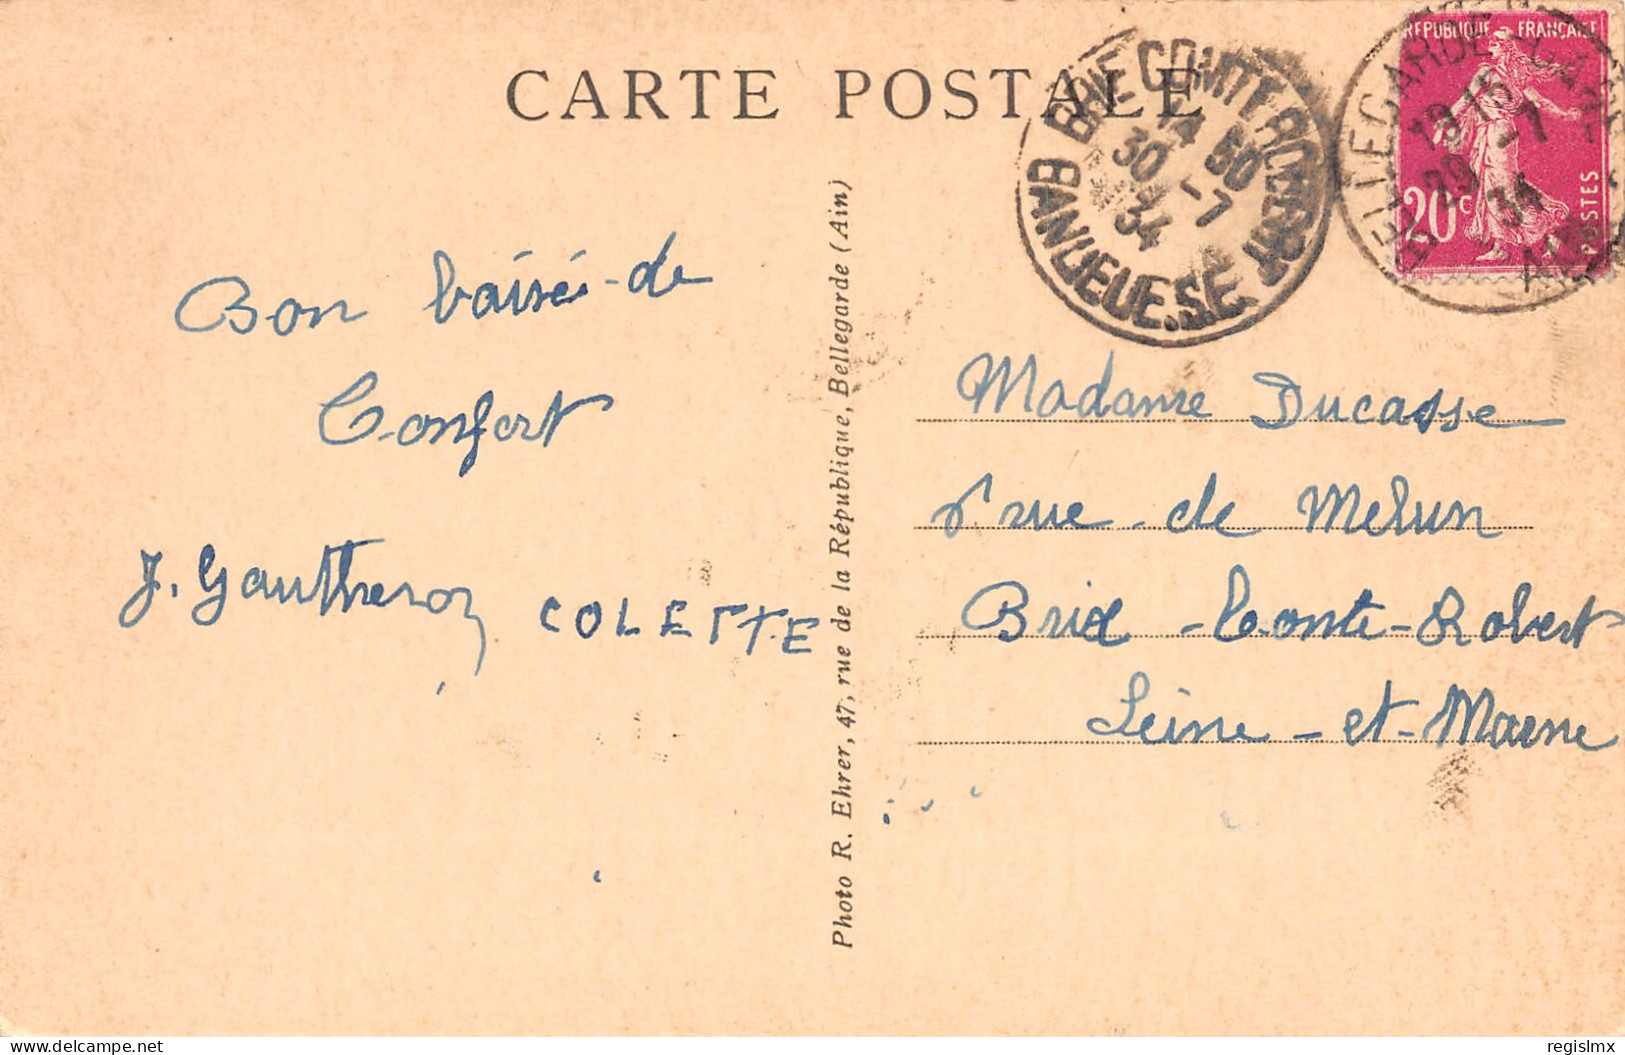 CARTE POSTALE
REPUBLIQUE FRANÇAISE
20c
POSTES
BELLEGARDE
AIN
29 -7 34
BRIE COMTE ROBERT
14 50
30 -7
34
BANLIEUE.S.E.
Bon baisé-de
Confort
J. Gautheron COLETTE
Photo R. Ehrer, 47, rue de la République, Bellegarde (Ain)
Madame Ducasse
rue de Melun
Brix-Conte-Robert
Seine-et-Marne
delcampe.net
regislmx